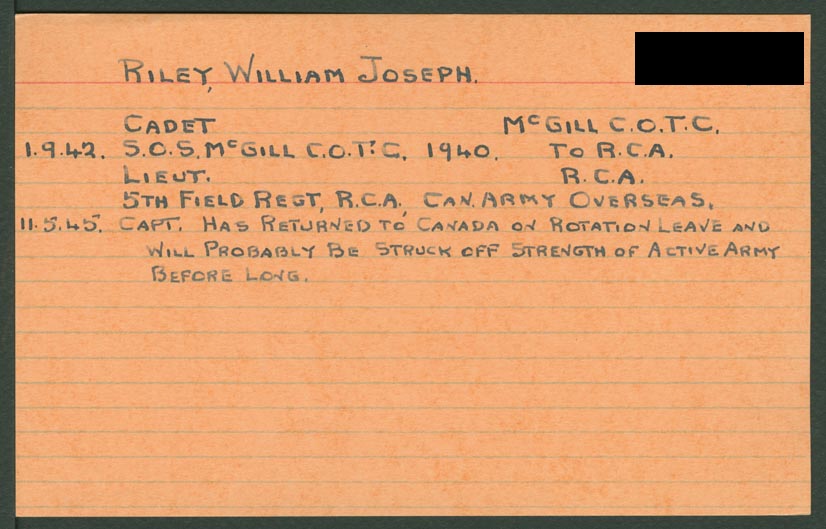 RILEY, WILLIAM JOSEPH.
CADET McGILL C.O.T.C.
1.9.42. S.O.S. McGILL C.O.T.C. 1940. TO R.C.A.
LIEUT. R.C.A.
5TH FIELD REGT, R.C.A, CAN. ARMY OVERSEAS,
11.5.45. CAPT. HAS RETURNED TO CANADA ON ROTATION LEAVE AND
WILL PROBABLY BE STRUCK OFF STRENGTH OF ACTIVE ARMY
BEFORE LONG.